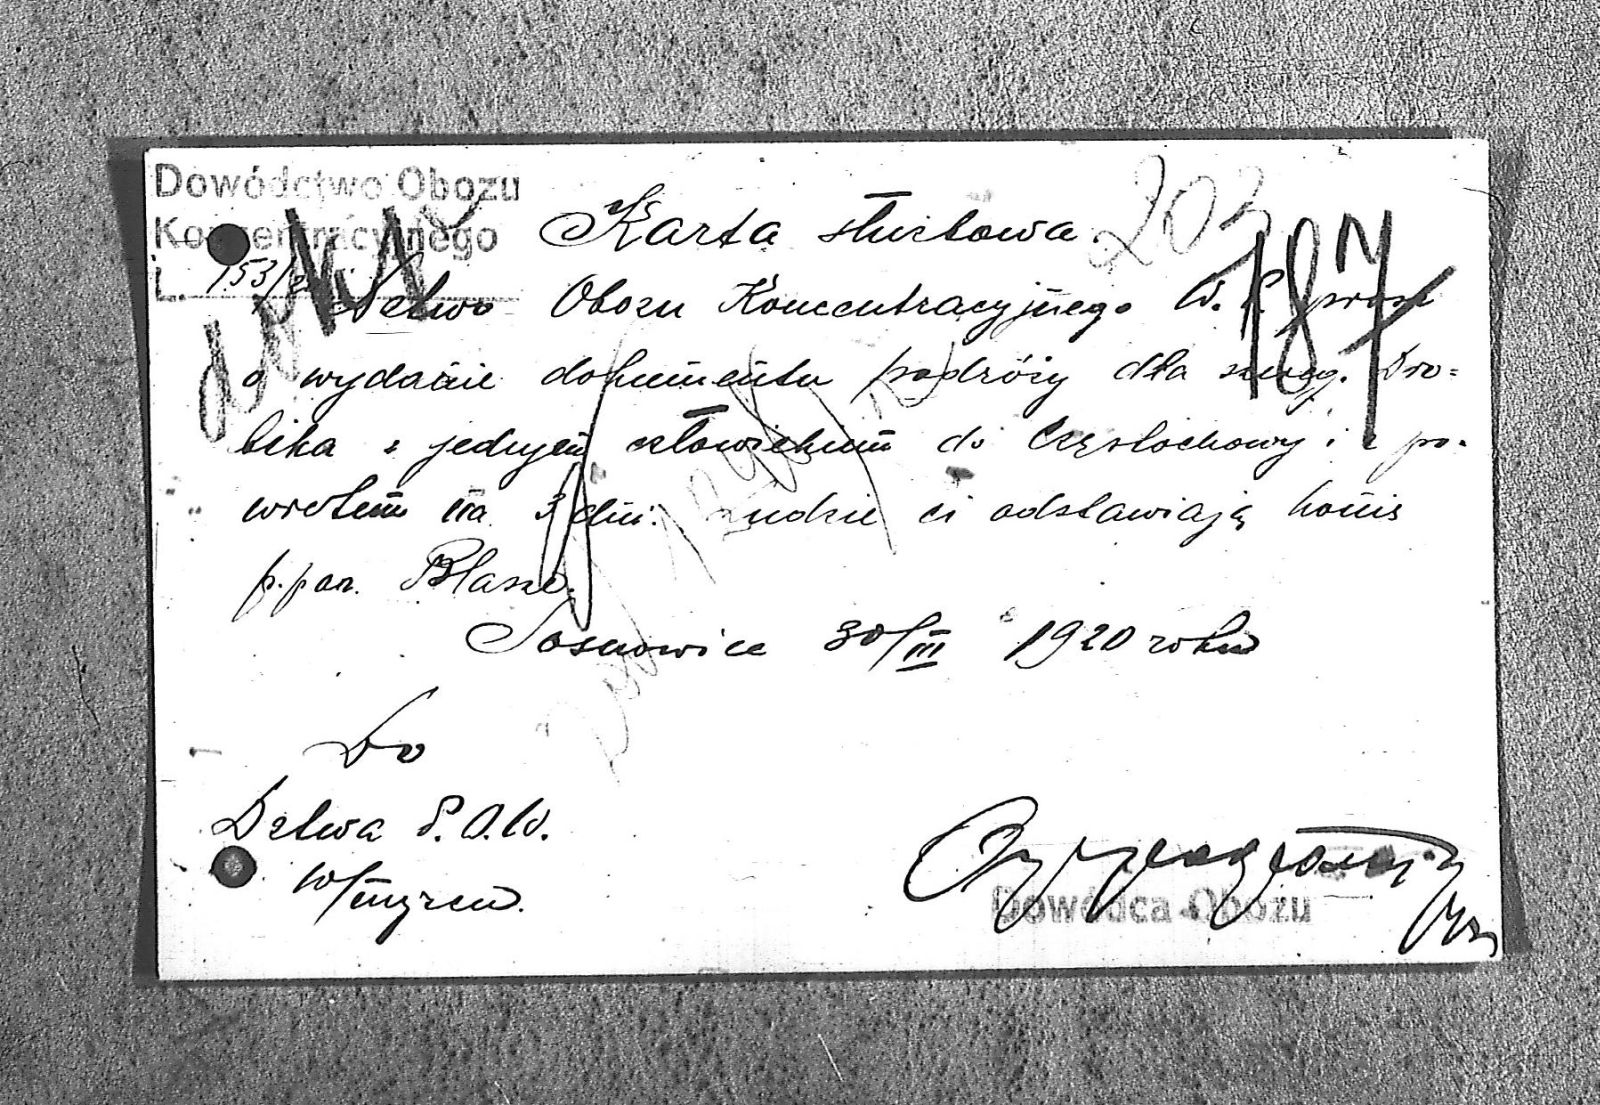 Dowództwo Obozu
Koncentracyjnego
L. 153/2
Karta służbowa.
203
187
Dctwo Obozu Koncentracyjnego W. P. prosi
o wydanie dokumentu podróży dla szereg. Dro-
bika z jednym człowiekiem do Częstochowy i z po-
wrotem na 3 dni. Ludzie ci odstawiają konie
p. por. Blasze.
Sosnowice 30/III 1920 roku
Do
Dctwa P.O.W.
w/m
Dowódca Obozu